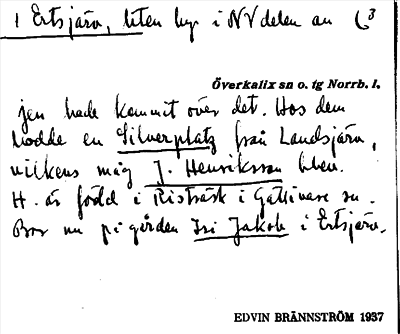 1 Ertsjärv, liten by i NV delen av 6³
Överkalix sn o. tg Norrb. l.
jen hade kommit över det. Hos dem
bodde en Silverplatz från Landsjärv,
vilkens måg J. Henriksson blev.
H. är född i Risträsk i Gällivare sn.
Bor nu på gården Isi Jakob i Ertsjärv.
EDVIN BRÄNNSTRÖM 1937